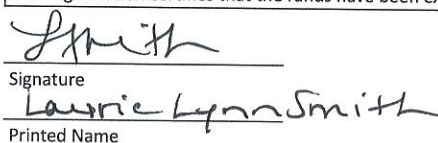 that the funds have been
LSmith
Signature
Laurie Lynn Smith
Printed Name